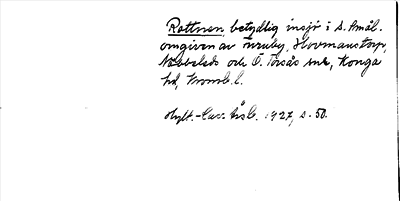 Rottnen, betydlig insjö i s. Smål.
omgiven av Furuby, Hovmanstorp,
Nöbbeleds och Ö. Torsås snr, Konga
hd, Kronob. l.
Hylt.-Cav. årsb. 1927, s. 50.